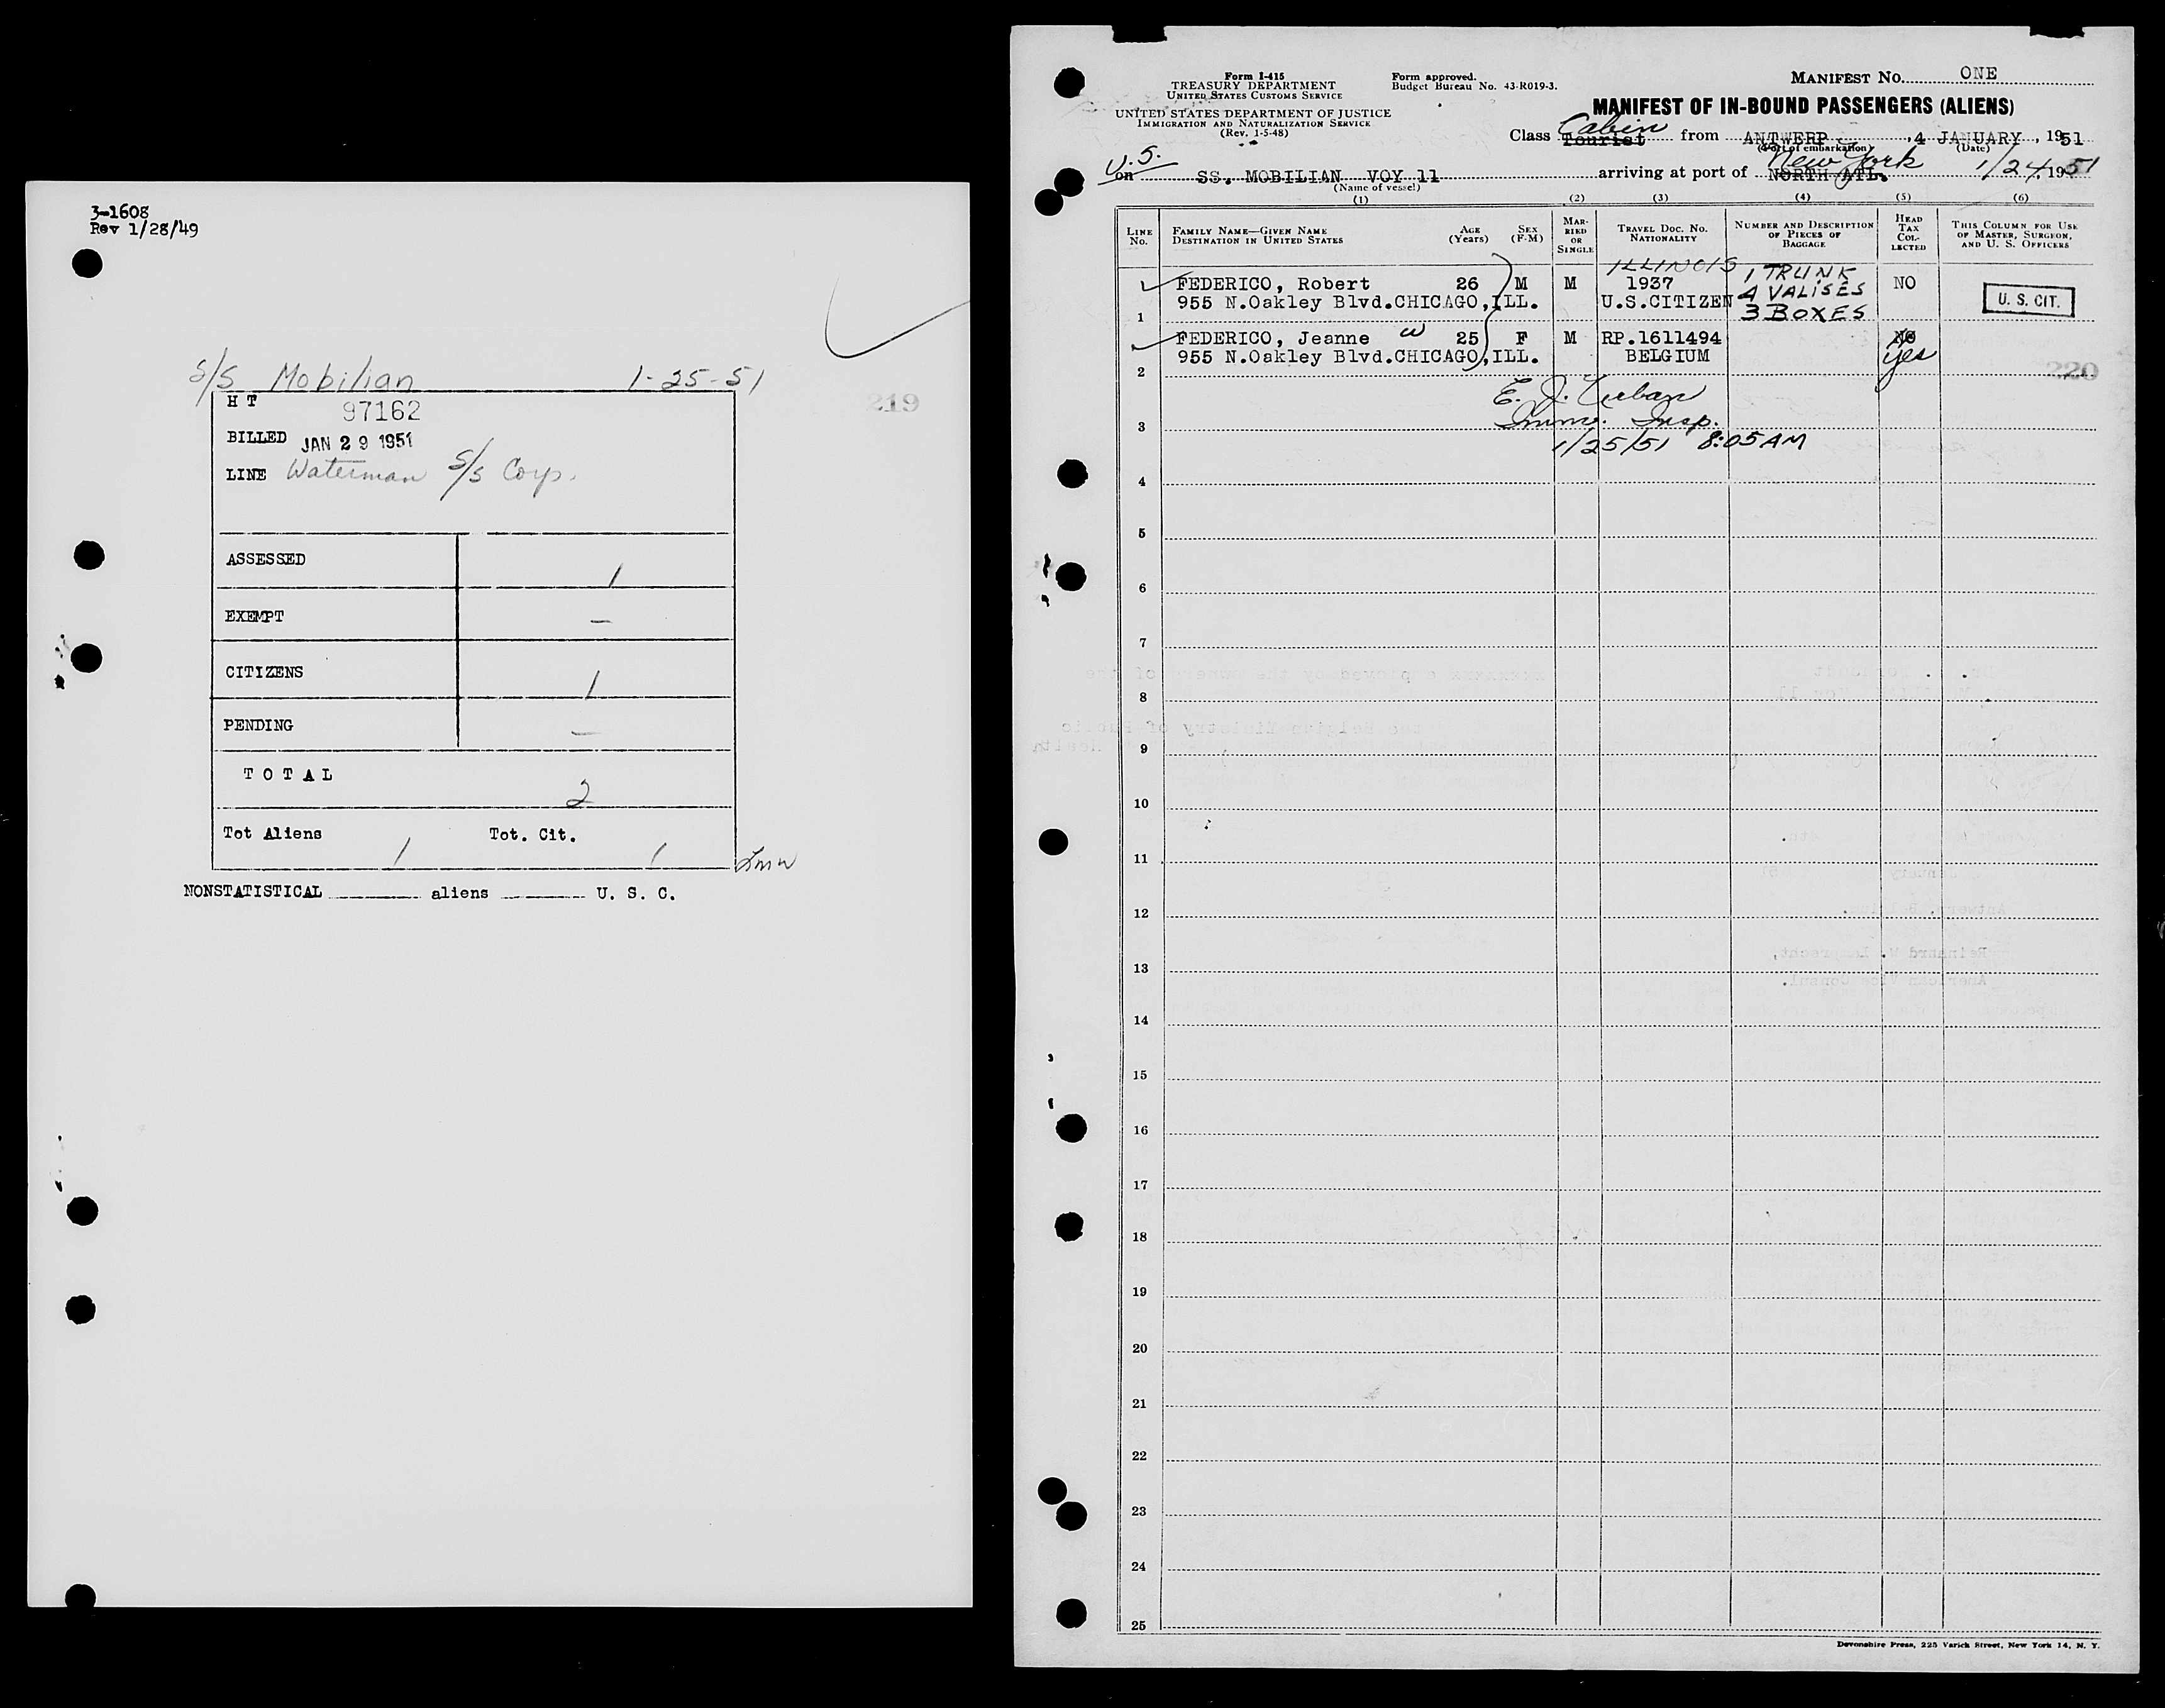 3-1608
Rev 1/28/49
S/S Mobilian 1-25-51
219
HT 97162
BILLED JAN 29 1951
LINE Waterman S/S Corp.
ASSESSED 1
EXEMPT —
CITIZENS 1
PENDING —
TOTAL 2
Tot Aliens 1 Tot. Cit. 1
Lmw
NONSTATISTICAL aliens U. S. C.
Form I-415
TREASURY DEPARTMENT
UNITED STATES CUSTOMS SERVICE
UNITED STATES DEPARTMENT OF JUSTICE
IMMIGRATION AND NATURALIZATION SERVICE
(Rev. 1-5-48)
Form approved.
Budget Bureau No. 43-R019-3.
MANIFEST No. ONE
MANIFEST OF IN-BOUND PASSENGERS (ALIENS)
Cabin
Class Tourist from ANTWERP, 4 JANUARY, 1951
(Port of embarkation) (Date)
U.S. New York
on SS. MOBILIAN VOY 11 arriving at port of NORTH ATL. 1/24, 1951
(Name of vessel)
(1) (2) (3) (4) (5) (6)
LINE No. FAMILY NAME—GIVEN NAME DESTINATION IN UNITED STATES AGE (Years) SEX (F-M) MARRIED OR SINGLE TRAVEL DOC. NO. NATIONALITY NUMBER AND DESCRIPTION OF PIECES OF BAGGAGE HEAD TAX COLLECTED THIS COLUMN FOR USE OF MASTER, SURGEON, AND U. S. OFFICERS
ILLINOIS 1 TRUNK
FEDERICO, Robert 26 M M 1937 4 VALISES NO
1 955 N.Oakley Blvd.CHICAGO,ILL. U.S.CITIZEN 3 BOXES U. S. CIT.
FEDERICO, Jeanne w 25 F M RP.1611494 NO
2 955 N.Oakley Blvd.CHICAGO,ILL. BELGIUM yes 220
E. J. Urban
3 Imm. Insp.
1/25/51 8:05 AM
4
5
6
7
8
9
10
11
12
13
14
15
16
17
18
19
20
21
22
23
24
25
Devonshire Press, 225 Varick Street, New York 14, N. Y.